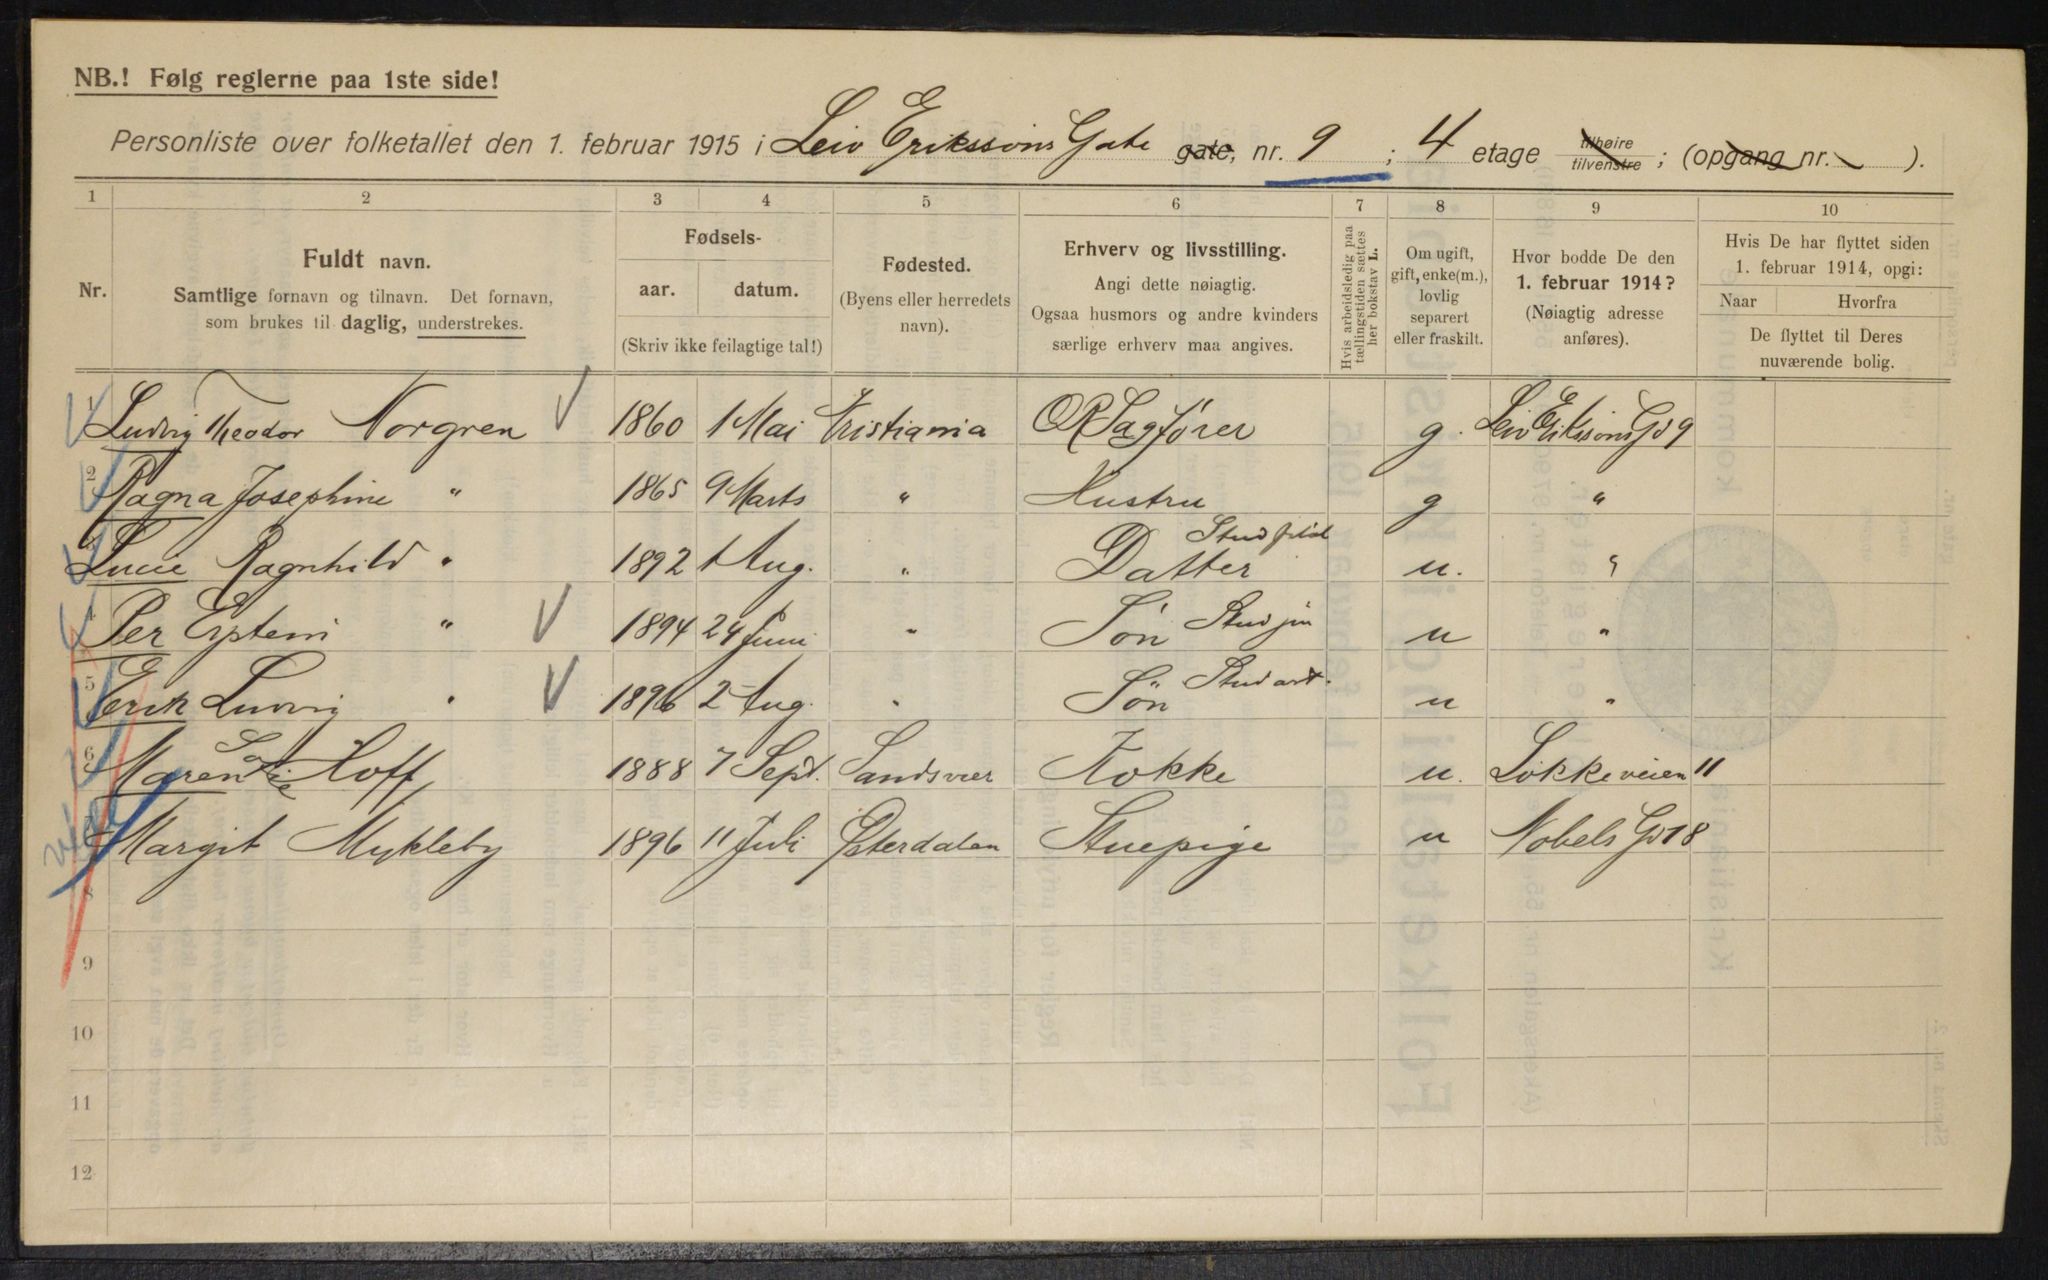 NB.! Følg reglerne paa 1ste side!
Personliste over folketallet den 1. februar 1915 i Leiv Erikssøns Gate gate, nr. 9 ; 4 etage tilhøire tilvenstre ; (opgang nr. ).
1 2 3 4 5 6 7 8 9 10
Nr.
Fuldt navn.
Samtlige fornavn og tilnavn. Det fornavn,
som brukes til daglig, understrekes.
Fødsels-
aar. datum.
(Skriv ikke feilagtige tal!)
Fødested.
(Byens eller herredets
navn).
Erhverv og livsstilling.
Angi dette nøiagtig.
Ogsaa husmors og andre kvinders
særlige erhverv maa angives.
Hvis arbeidsledig paa
tællingstiden sættes
her bokstav L.
Om ugift,
gift, enke(m.),
lovlig
separert
eller fraskilt.
Hvor bodde De den
1. februar 1914?
(Nøiagtig adresse
anføres).
Hvis De har flyttet siden
1. februar 1914, opgi:
Naar Hvorfra
De flyttet til Deres
nuværende bolig.
1 Ludvig Theodor Norgren 1860 1 Mai Kristiania OR Sagfører g. Leiv Erikssøns Gd 9
2 Ragna Josephine " 1865 9 Marts " Hustru g "
3 Lucie Ragnhild " 1892 1 Aug. " Datter Stud filol u. "
4 Per Eystein " 1894 24 Juni " Søn Stud jur u "
5 Erik Ludvig " 1896 2 Aug. " Søn Stud art. u "
6 Maren Sofie Hoff 1888 7 Sept. Sandsvær Kokke u. Løkkeveien 11
7 Margit Mykleby 1896 11 Juli Østerdalen Stuepige u Nobels Gd 18
8
9
10
11
12